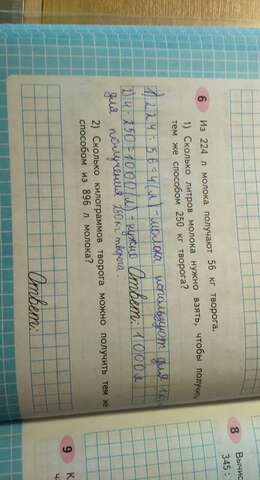 6 Из 224 л молока получают 56 кг творога.
1) Сколько литров молока нужно взять, чтобы получи
тем же способом 250 кг творога?
1) 224 : 56 = 4 (л) - молока используют для
2) 4 250 = 1000 (л) - нужно Ответ: 1000 л
для получения 250 кг творога.
2) Сколько килограммов творога можно получить тем же
способом из 896 л молока?
Ответ:
8 Вычис
345 :
9 К